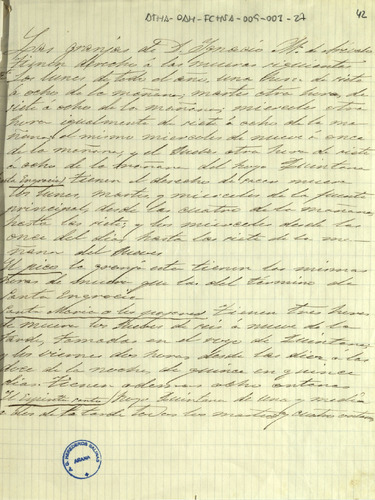 ATHA-DAH-FCHSA-009-001-27
42
Las granjas de D. Ignacio Mª de
tienen derecho a las muevas siguiente
los lunes de todo el año, una hora de siete
a ocho de la mañana, martes otra hora, de
siete a ocho de la mañana, miercoles otra
hora igualmente de siete a ocho de la ma
ñana, el mismo miercoles de nueve á once
de la mañana, y el Jueves otra hora de siete
a ocho de la mañana del hoyo Quintana
Sta Engracia tienen el derecho de mueva
los lunes, martes, y miercoles de la fuente
principal, desde las cuatro de la mañana
hasta las siete; y los miercoles desde las
once del dia, hasta las siete de la ma
ñana del Jueves
El pico la granja esta tienen las mismas
horas de mueva que las del termino de
Santa Engracia
Santa Maria tienen tres horas
de mueva los Jueves de seis á nueve de la
tarde, tomadas en el oyo de Quintana,
y los viernes dos horas desde las diez a las
doce de la noche, de quince en quince
dias. tienen ademas ocho
hoyo Quintana de una y media
a dos de la tarde todos los martes y cuatro